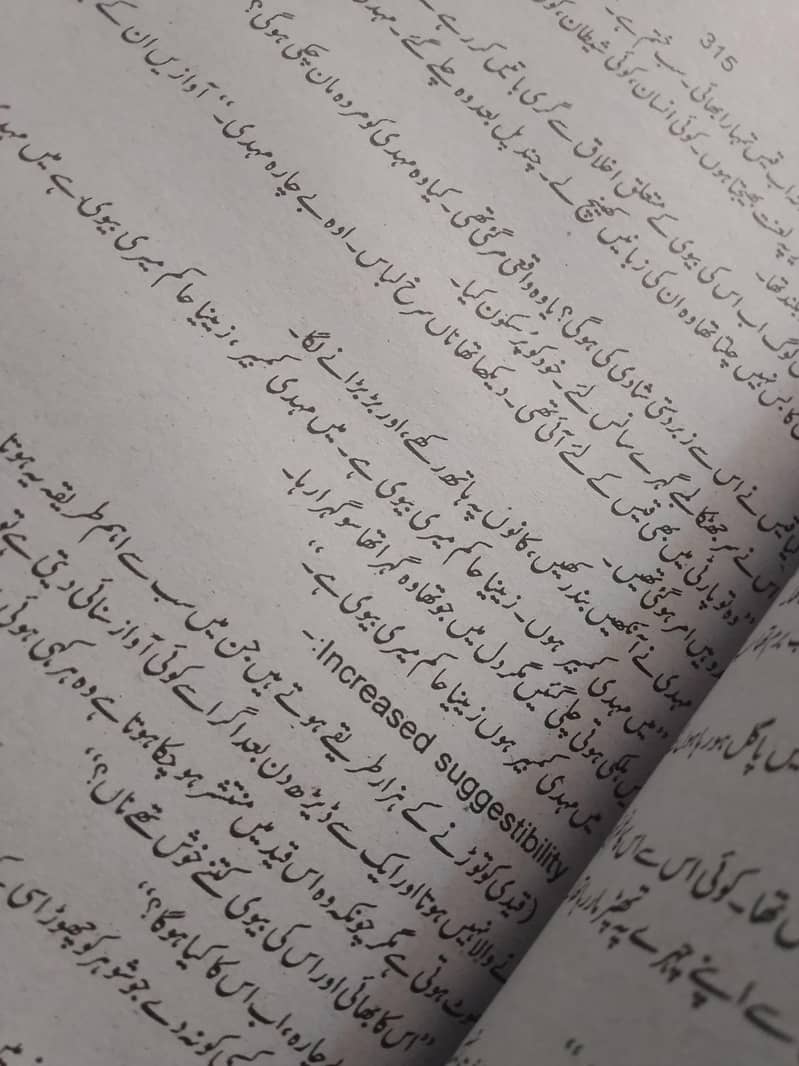 315
قیس تمہارا بھائی۔ سب ختم ہے۔
پہ لعنت بھیجتا ہوں۔ کوئی انسان، کوئی شیطان، کوئی
بلند تھا۔
لوگ اب اس کی بیوی کے متعلق اخلاق سے گری باتیں کر رہے
کا بس نہیں چلتا تھا وہ ان کی زبانیں کھینچ لے۔ چند پل بعد وہ چلے گئے۔ مہدی
قیس نے اس سے زبردستی شادی کی ہوگی؟ یا وہ واقعی مر گئی تھی۔ کیا وہ مہدی کو مردہ مان چکی ہوگی؟
اس نے سر جھٹکا لمبے گہرے سانس لئے۔ خود کو پر سکون کیا۔
"وہ تو پارٹی میں بھی قیس کے لئے آئی تھی۔ دیکھا تھا ناں سرخ لباس۔ اوہ بے چارہ مہدی۔" آوازیں ان کے
وہیں امر ہوگئی تھیں۔
مہدی نے آنکھیں بند رکھیں، کانوں پہ ہاتھ رکھے، اور بڑبڑانے لگا۔
"میں مہدی کمبیر ہوں۔ زینیا حاکم میری بیوی ہے۔ میں مہدی کمبیر، زینیا حاکم میری بیوی ہے میں مہدی
ہلکی ہوتی چلی گئیں مگر دل میں جو تھا وہ گہرا تھا سو گہرا رہا۔
میں مہدی کمبیر ہوں زینیا حاکم میری بیوی ہے۔"
Increased suggestibility:۔
(قیدی کو توڑنے کے ہزار طریقے ہوتے ہیں جن میں سب سے اہم طریقہ یہ ہوتا
نے والا نہیں ہوتا اور ایک سے ڈیڑھ دن بعد اگر اسے کوئی آواز سنائی دیتی ہے تو
ہوتی ہے مگر چونکہ وہ اس قید میں منتشر ہو چکا ہوتا ہے وہ ہر کہی ہوئی
"اس کا بھائی اور اس کی بیوی کتنے خوش تھے ناں؟"
چارہ، اب اس کا کیا ہوگا؟"
کسی کو نہ دے جو شوہر کو چھوڑ اسی کے
میں پاگل ہو رہا ہوں
تھا۔ کوئی اس سے اس
سے اپنے چہرے پہ تھپڑ مار رہا